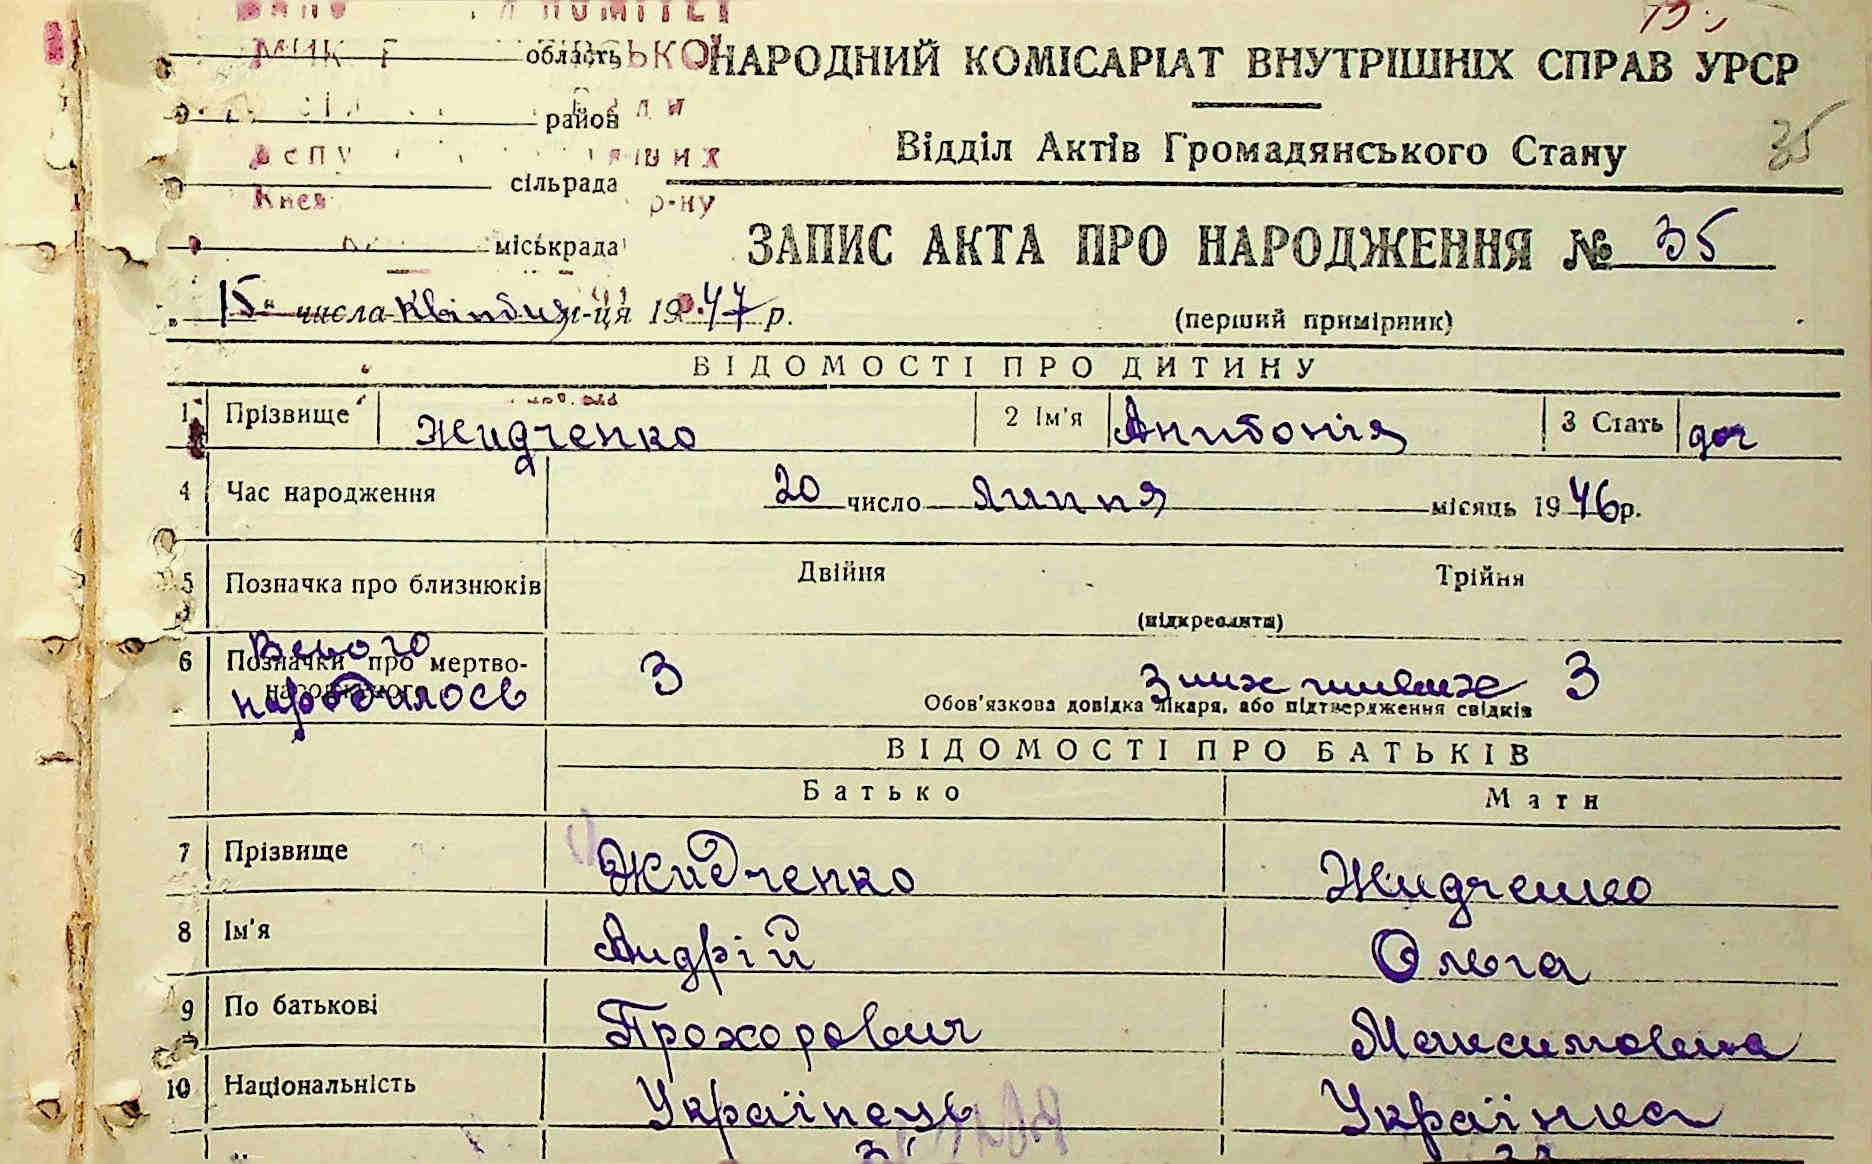 область
НАРОДНИЙ КОМІСАРІАТ ВНУТРІШНІХ СПРАВ УРСР
район
Відділ Актів Громадянського Стану
35
сільрада
р-ну
міськрада
ЗАПИС АКТА ПРО НАРОДЖЕННЯ № 35
„15“ числа Квітня м-ця 1947 р.
(перший примірник)
ВІДОМОСТІ ПРО ДИТИНУ
1 Прізвище Жидченко 2 Ім'я Антонія 3 Стать доч
4 Час народження 20 число липня місяць 1946 р.
5 Позначка про близнюків Двійня Трійня
(підкреслити)
Всього
6 Позначки про мертво-
народженого
народилось 3 З них живих 3
Обов'язкова довідка лікаря, або підтвердження свідків
ВІДОМОСТІ ПРО БАТЬКІВ
Батько Мати
7 Прізвище Жидченко Жидченко
8 Ім'я Андрій Ольга
9 По батькові Прохорович Максимовна
10 Національність Українець Українка